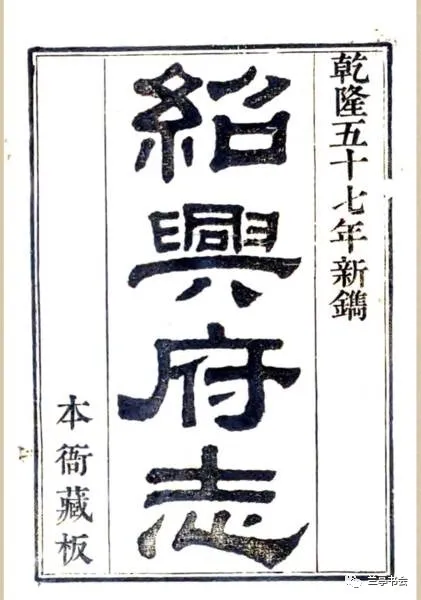 乾隆五十七年新鐫
紹興府志
本衙藏板
兰亭书会